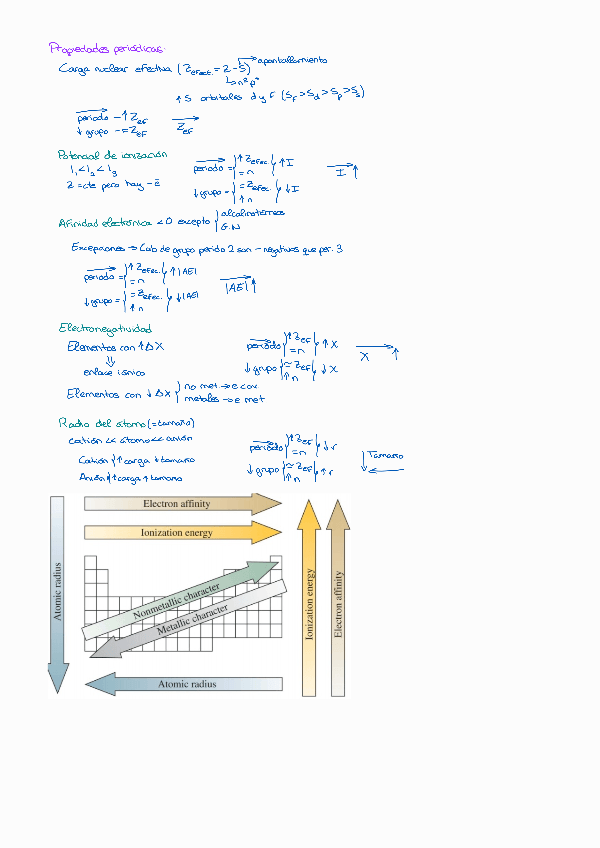 Propiedades periódicas:
Carga nuclear efectiva (Zefect. = Z - S) → apantallamiento
↳ nº p⁺
↑ S orbitales d y f (Sf > Sd > Sp > Ss)
periodo - ↑ Zef
↓ grupo - = Zef
Zef
Potencial de ionización
I₁ < I₂ < I₃
Z = cte pero hay - ē
periodo = { ↑ Zefec. = n } ↑ I
↓ grupo = { = Zefec. ↑ n } ↓ I
I ↑
Afinidad electrónica < 0 excepto { alcalinotérreos G.N
Excepciones → Cab de grupo periodo 2 son - negativos que per. 3
periodo = { ↑ Zefec. = n } ↑ |AE|
↓ grupo = { = Zefec. ↑ n } ↓ |AE|
|AE| ↑
Electronegatividad
Elementos con ↑ Δ X
⇓
enlace iónico
Elementos con ↓ Δ X { no met → e cov. metales → e met
periodo { ↑ Zef = n } ↑ X
↓ grupo { ≃ Zef ↑ n } ↓ X
X ↑
Radio del átomo (= tamaño)
catión << átomo << anión
Catión { ↑ carga ↓ tamaño
Anión { ↑ carga ↑ tamaño
periodo { ↑ Zef = n } ↓ r
↓ grupo { ≃ Zef ↑ n } ↑ r
↓ Tamaño
Electron affinity
Ionization energy
Atomic radius
Nonmetallic character
Metallic character
Atomic radius
Ionization energy
Electron affinity